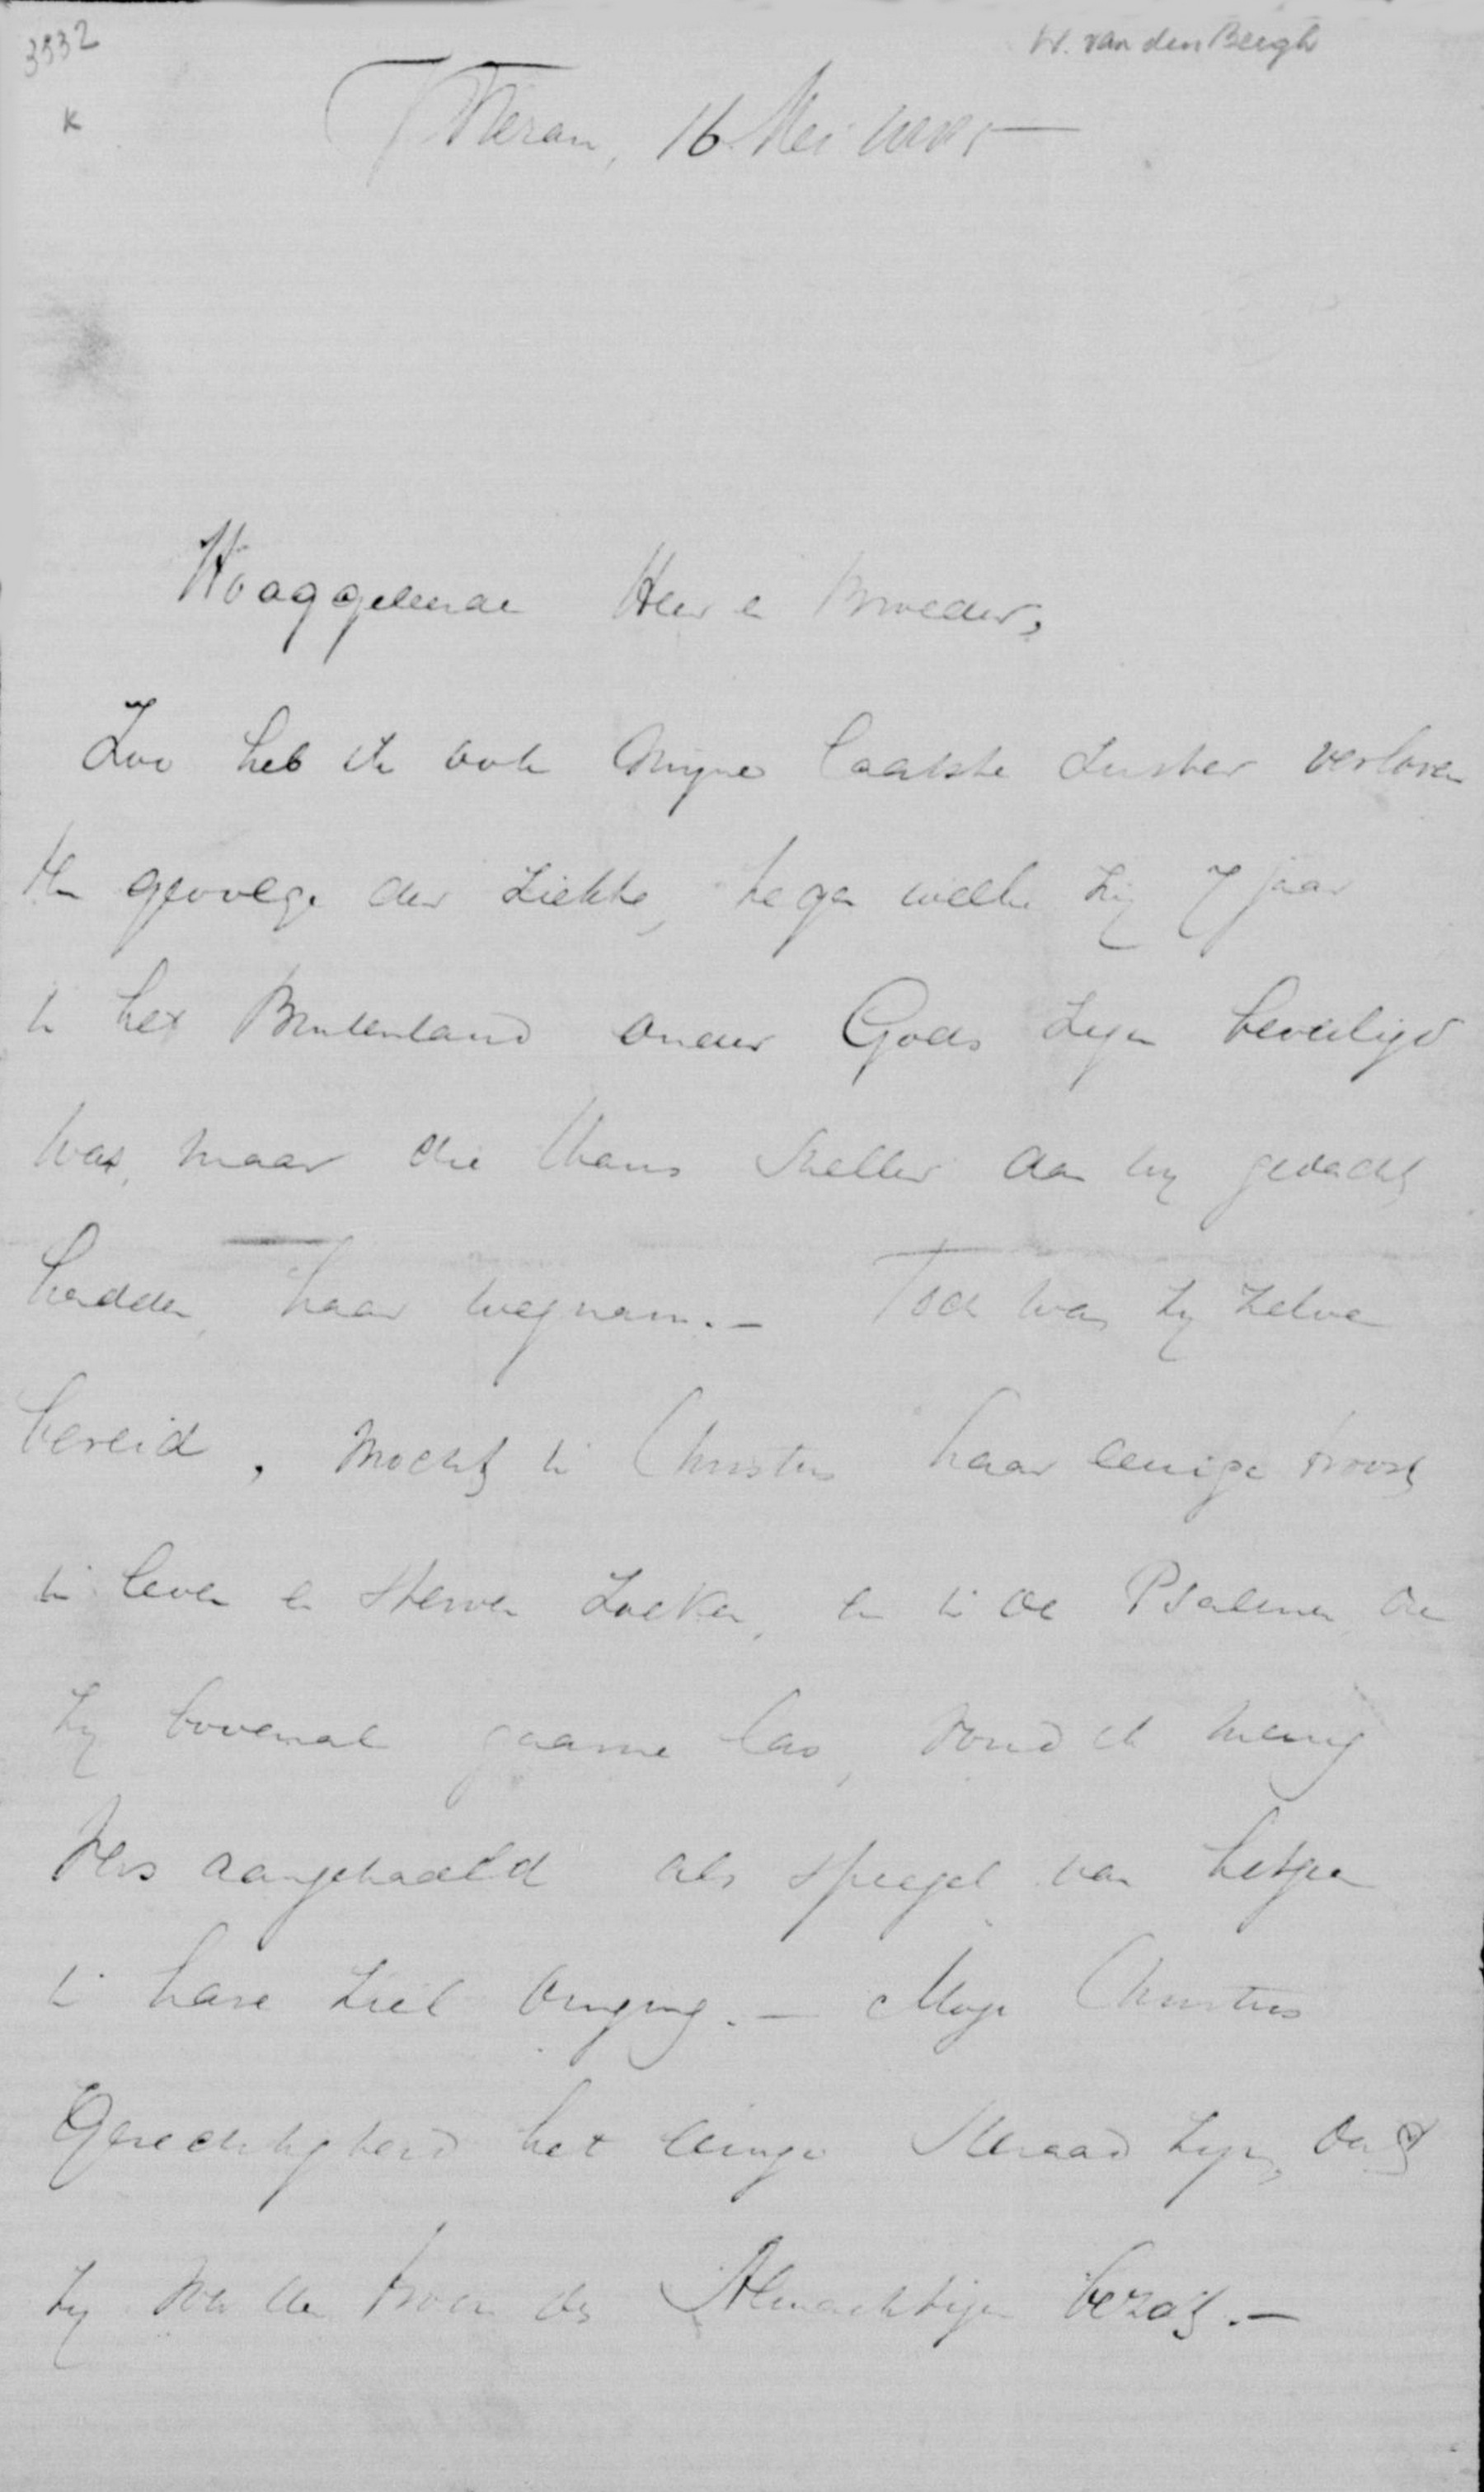 3932
W. van den Bergh
K
Meran, 16 Mei
Hooggeleerde Heer en Broeder,
Zoo heb ik ook mijne laatste zuster verloren
ten gevolge der ziekte, tegen welke zij 7 jaar
in het Buitenland onder Gods zegen beveiligd
was, maar die thans sneller dan wij gedacht
hadden, haar wegnam. —  Toch was zij zelve
bereid, mocht in Christus haar eenige troost
in leven en sterven zoeken, en in de Psalmen, die
zij bovenal gaarne las, vond ik menig
vers aangehaald als spiegel van hetgeen
in hare ziel omging. — Moge Christus
Gerechtigheid het eenige sieraad zijn, dat
zij voor den troon des Almachtigen bezat. —